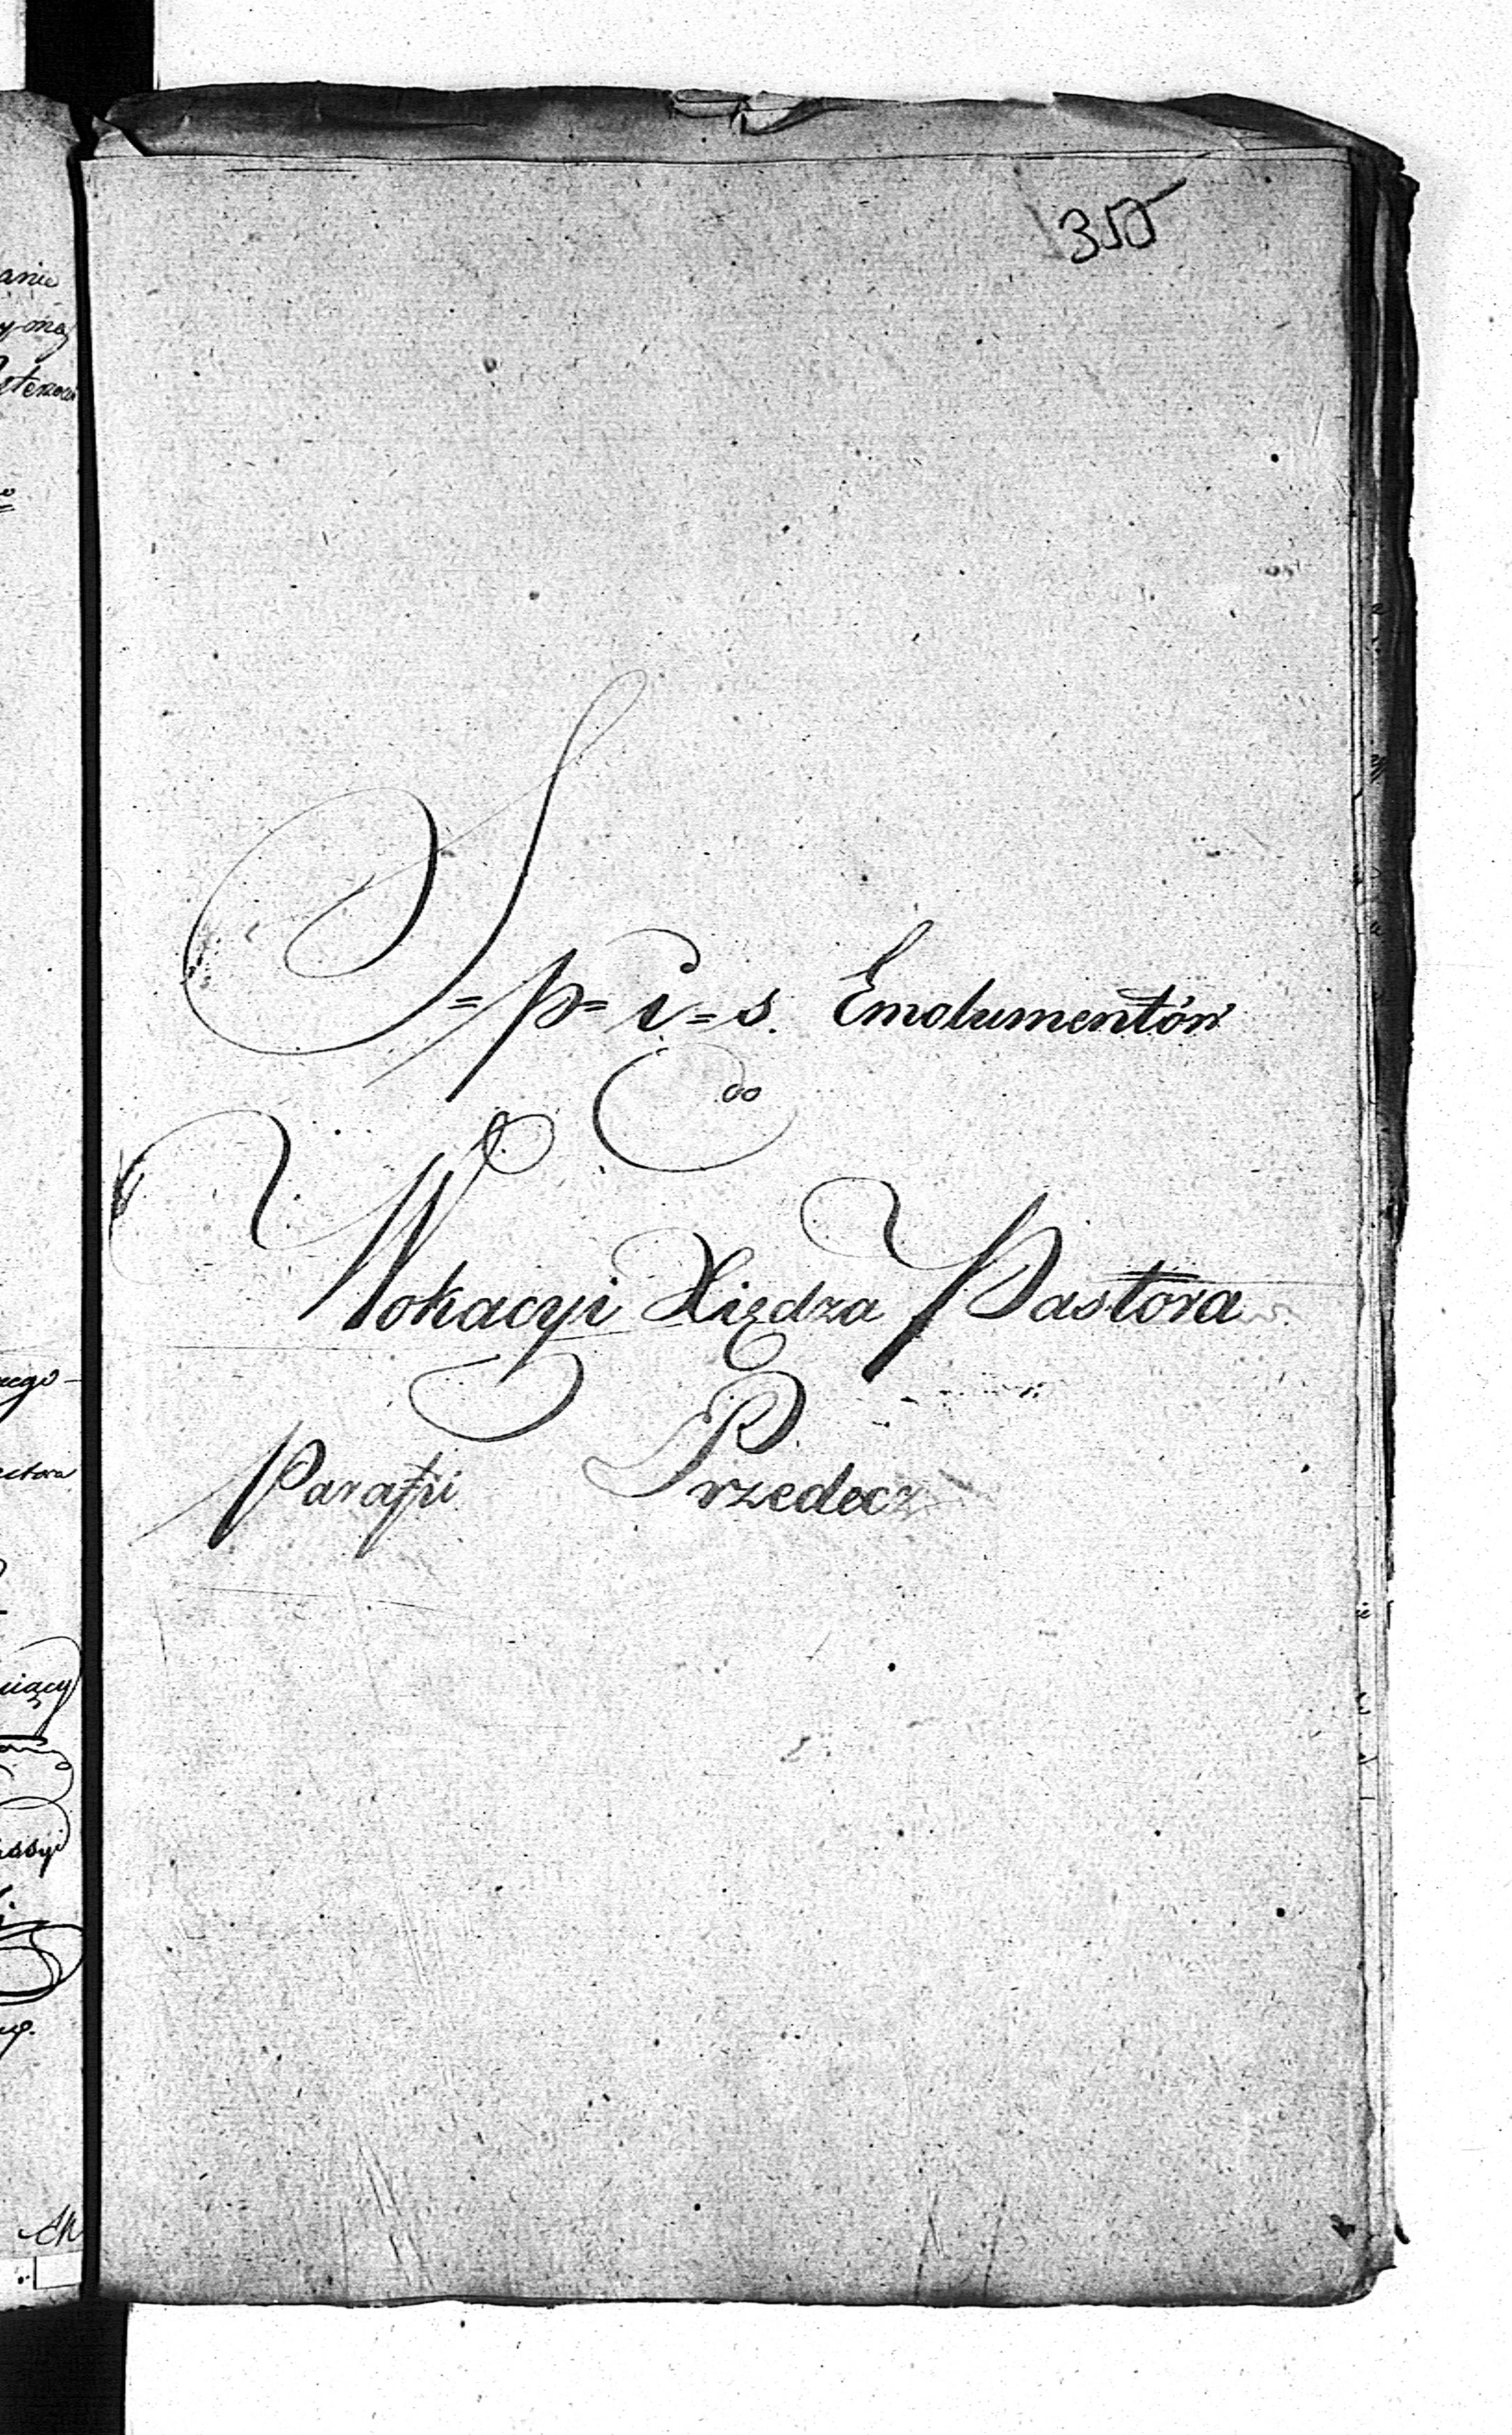 350
S=p=i=s. Emolumentów
do
Wokacyi Xiędza Pastora
Parafii Przedecz